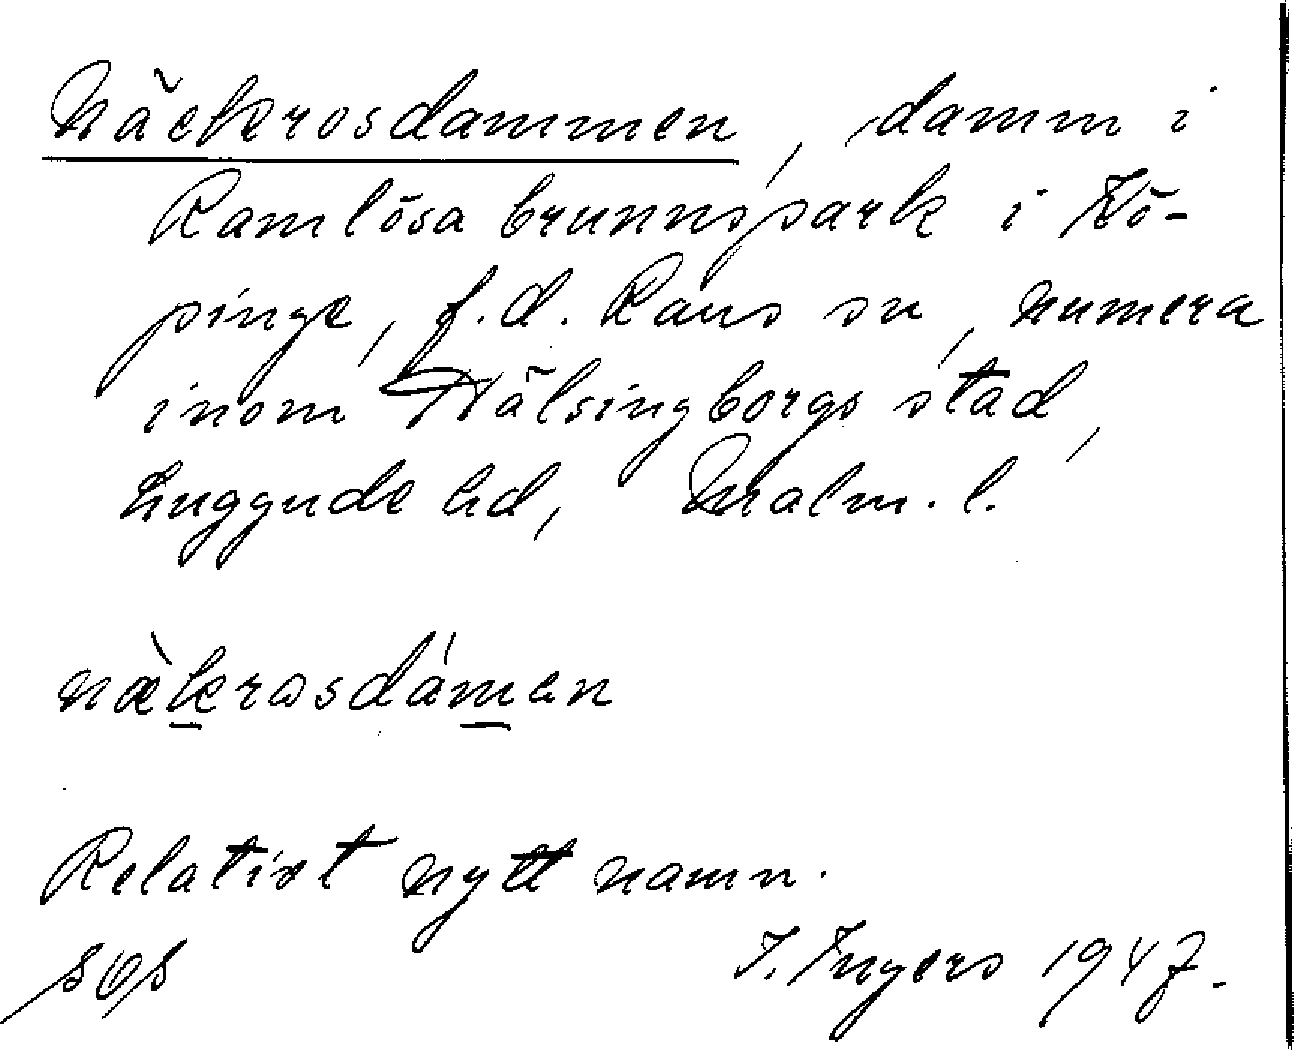 Näckrosdammen, damm i
Ramlösa brunnspark i Kö-
pinge, f.d. Raus sn, numera
inom Hälsingborgs stad,
Luggude hd, Malm. l.
nækrosdámen
Relativt nytt namn.
I. Ingers 1947.